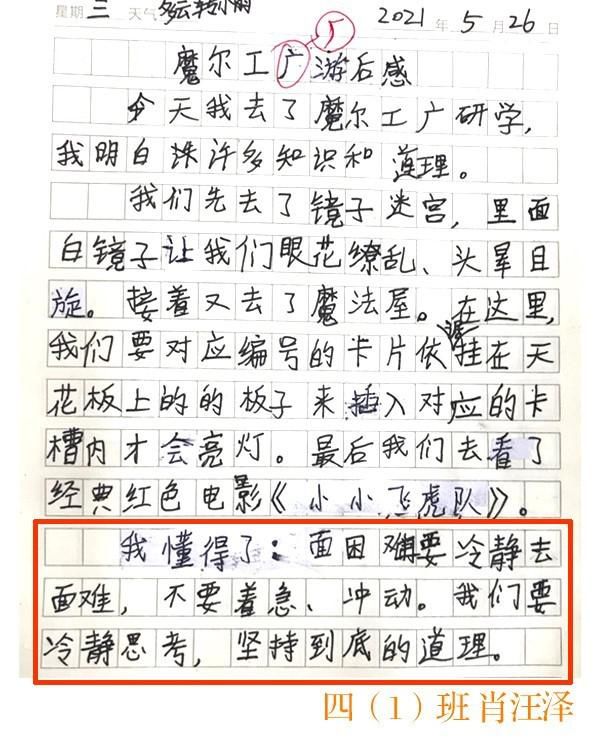 星期三 天气多云转小雨 2021年5月26日
魔尔工广游后感
今天我去了魔尔工广研学,
我明白涂许多知识和道理。
我们先去了镜子迷宫,里面
白镜子让我们眼花缭乱、头晕目
旋。接着又去了魔法屋。在这里,
我们要对应编号的卡片依挂在天
花板上的的板子来插入对应的卡
槽内才会亮灯。最后我们去看了
经典红色电影《小小飞虎队》。
我懂得了:面困难要冷静去
面难,不要着急、冲动。我们要
冷静思考,坚持到底的道理。
四(1)班 肖汪泽